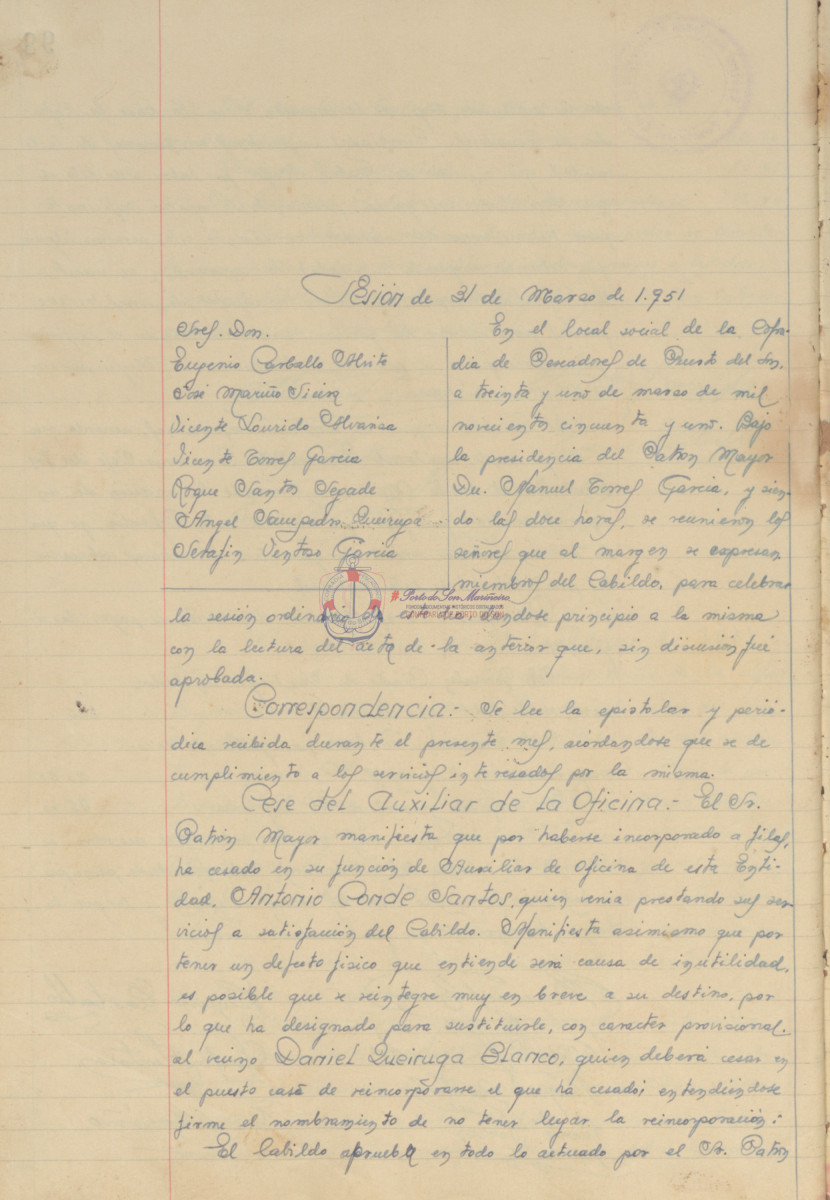 Sesión de 31 de Marzo de 1.951
Sres. Don.
Eugenio Carballo Alvite
José Mariño Sieira
Vicente Lourido Alvariza
Vicente Torres Garcia
Roque Santos Segade
Angel Sampedro Queiruga
Serafin Ventoso Garcia
En el local social de la Cofra-
dia de Pescadores de Puerto del Son,
a treinta y uno de marzo de mil
novecientos cincuenta y uno. Bajo
la presidencia del Patron Mayor
Du. Manuel Torres Garcia, y sien-
do las doce horas, se reunieron los
señores que al margen se expresan
miembros del Cabildo, para celebrar
la sesión ordinaria de este dia dandose principio a la misma
con la lectura del acta de la anterior que, sin discusión fué
aprobada.
Correspondencia.- Se lee la epistolar y perió-
dica recibida durante el presente mes, acordandose que se de
cumplimiento a los servicios interesados por la misma.
Cese del Auxiliar de la Oficina.- El Sr.
Patrón Mayor manifiesta que por haberse incorporado a filas,
ha cesado en su función de Auxiliar de Oficina de esta Enti-
dad, Antonio Conde Santos, quien venia prestando sus ser-
vicios a satisfacción del Cabildo. Manifiesta asimismo que por
tener un defecto fisico que entiende será causa de inutilidad,
es posible que se reintegre muy en breve a su destino, por
lo que ha designado para sustituirle, con caracter provisional.
al vecino Daniel Queiruga Blanco, quien deberá cesar en
el puesto caso de reincorporarse el que ha cesado; entendiéndose
firme el nombramiento de no tener lugar la reincorporación:
El Cabildo aprueba en todo lo actuado por el Sr. Patrón
#Porto do Son Mariñeiro